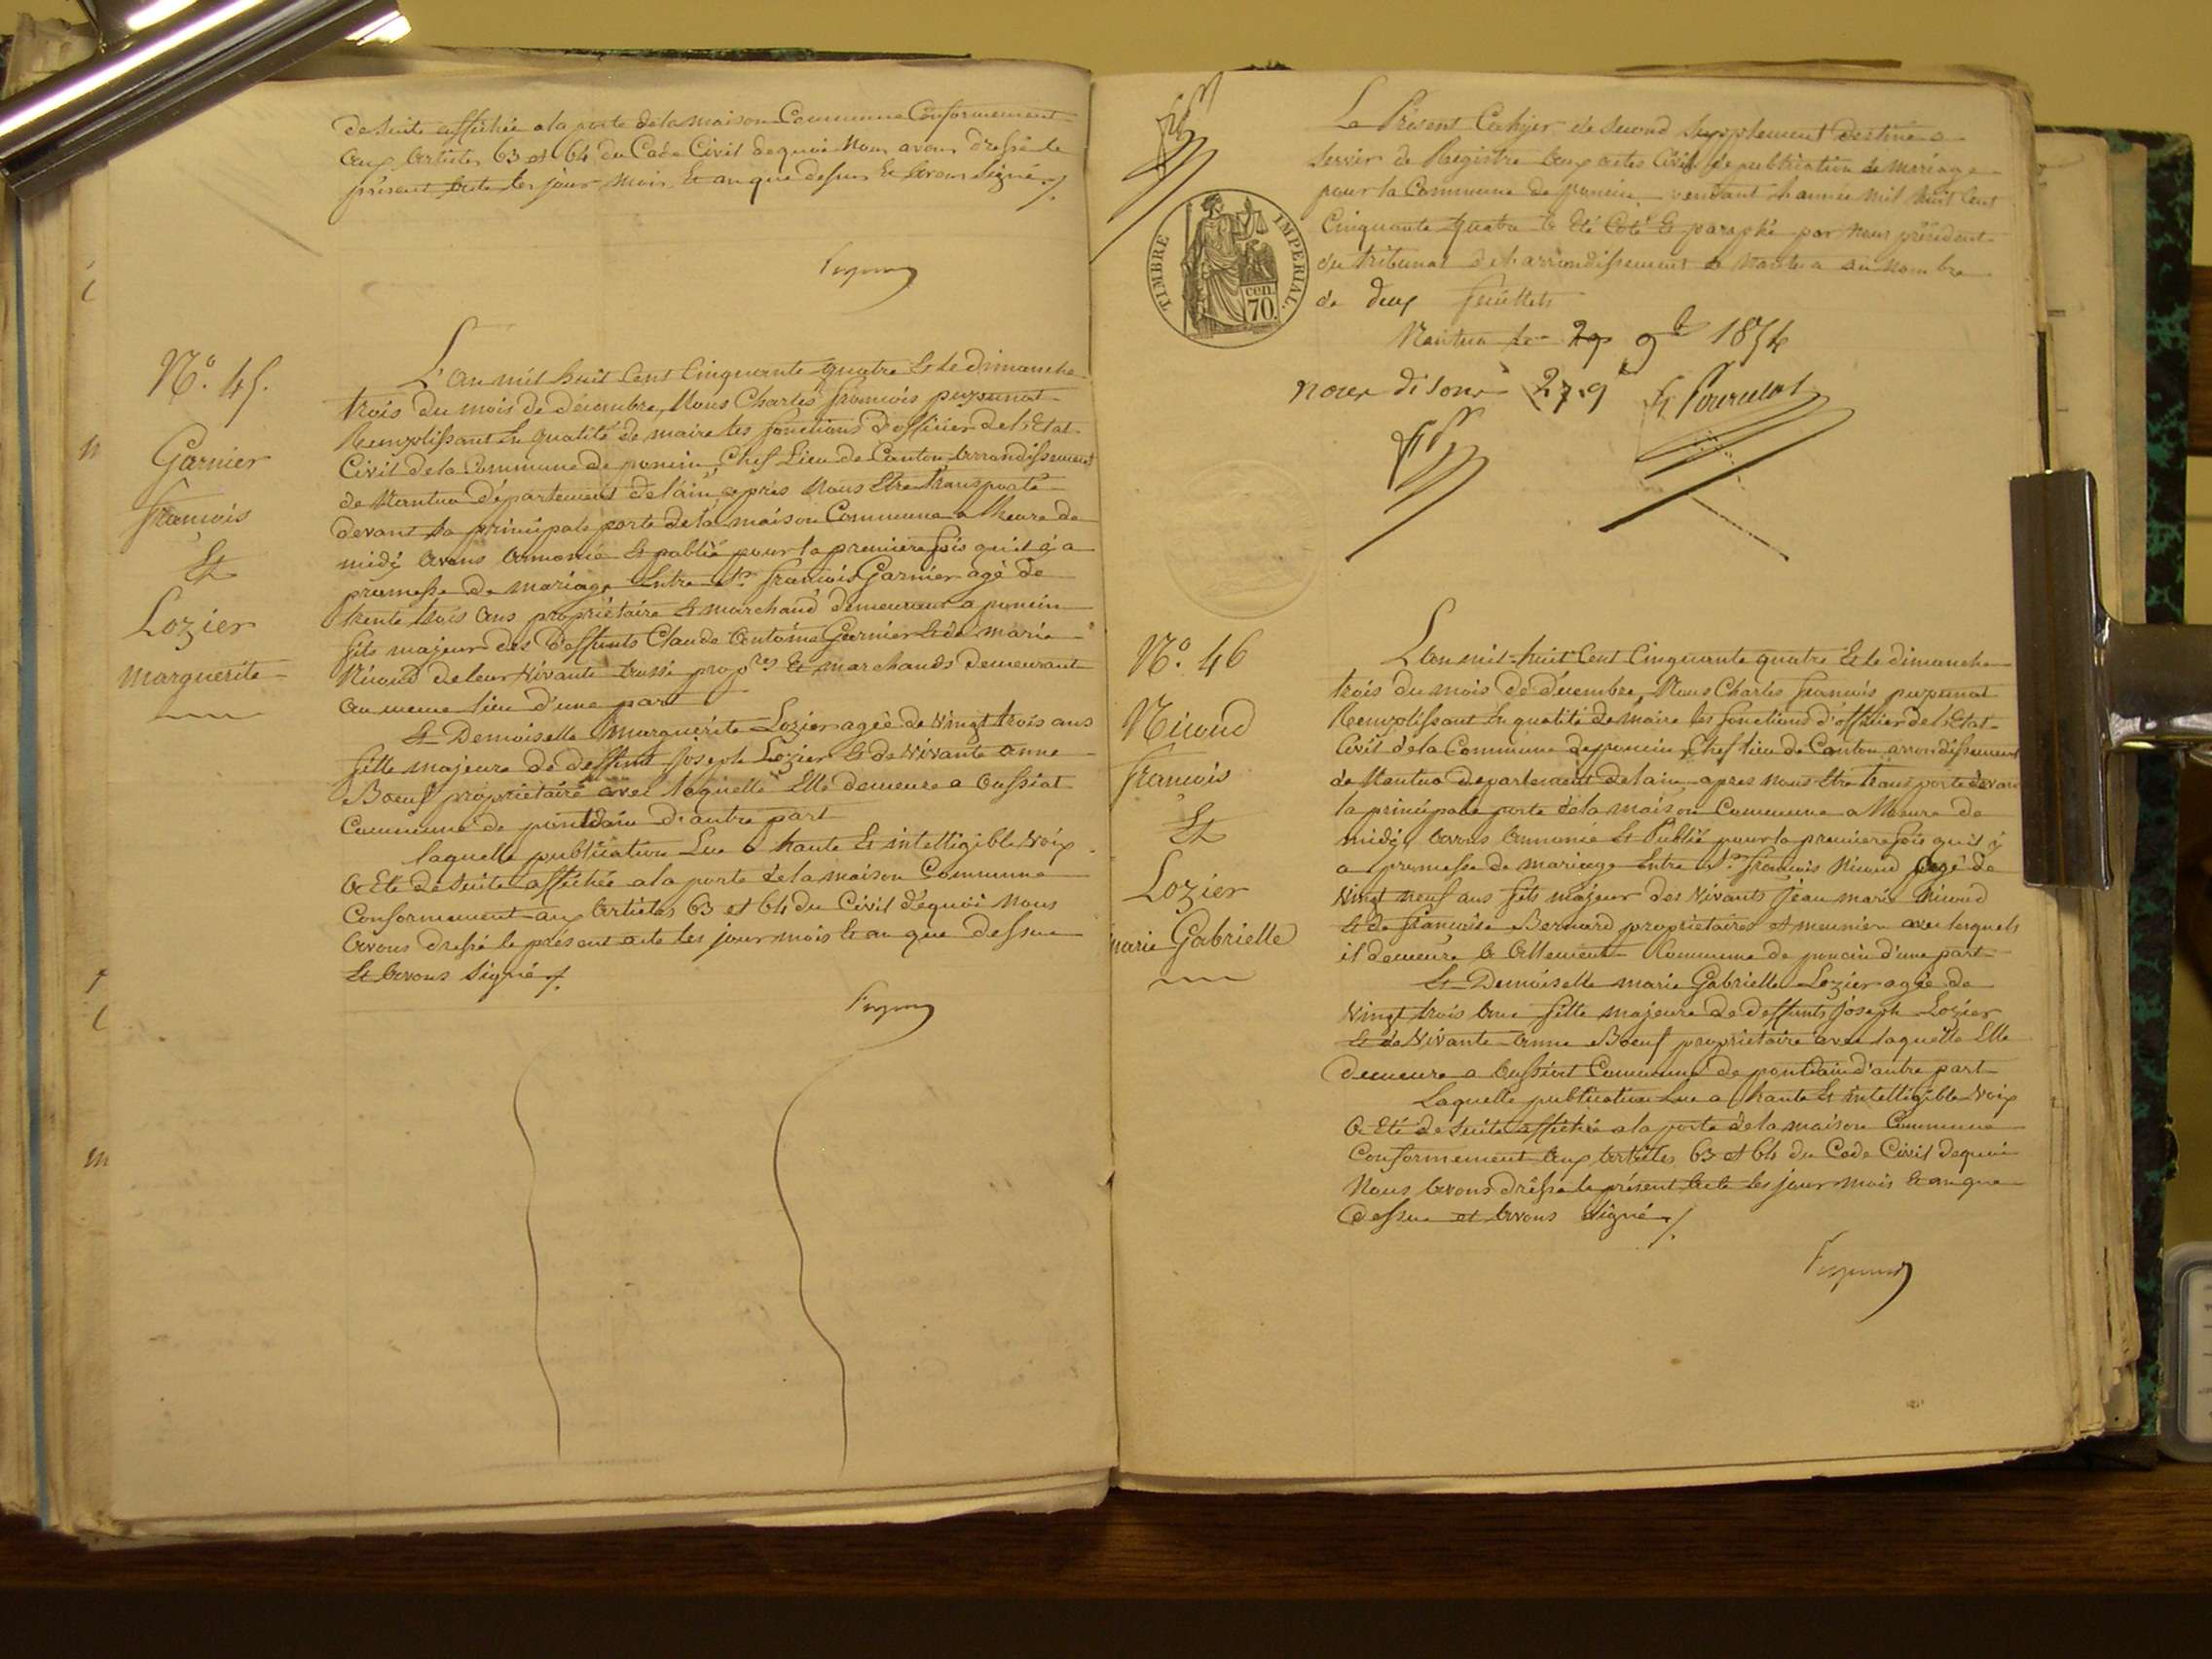 de suite affichée a la porte de la maison Commune Conformement
aux articles 63 et 64 du Code Civil dequoi Nous avons dressé le
présent acte les jour mois et an que dessus et avons signé ./.
N.o 45.
Garnier
francois
Et
Lozier
marguerite
L'an mil huit Cent Cinquante quatre Et le dimanche
trois du mois de décembre, Nous Charles francois puzunat
Remplissant En qualité de maire les fonctions d'officier de l'Etat
Civil de la Commune de poncin, Chef Lieu de Canton arrondissement
de Nantua département de l'ain, après Nous Etre transporté
devant la principale porte de la maison Commune a l'heure de
midÿ avons annoncé Et publié pour la premiere fois qu'il ÿ a
promesse de mariage Entre Sr. francois Garnier agé de
trente trois ans propriétaire Et marchand demeurant a poncin
fils majeur des deffunts Claude antoine Garnier Et de marie
Nicoud de leur Vivante aussi propres Et marchands demeurant
au meme lieu d'une part
Et Demoiselle marguerite Lozier agée de Vingt trois ans
fille majeure de deffunt Joseph Lozier Et de Vivante anne
Boeuf propriétaire avec laquelle Elle demeure a oussiat
Commune de pontdain d'autre part
laquelle publication Lue a haute Et intelligible Voix
a Eté de suite affichée a la porte de la maison Commune
Conformement aux articles 63 et 64 du Civil dequoi Nous
avons dressé le présent acte les jour mois et an que dessus
Et avons signé ./.
Le Présent Cahyer de second supplement destiné a
servir de Registre aux actes Civils de publication de mariage
pour la Commune de poncin pendant l'année mil huit Cent
Cinquante quatre a Eté Coté Et paraphé par Nous président
du tribunal de l'arrondissement de Nantua au Nombre
de deux feuillets
Nantua le 29 9b 1854
nous disons 27 9b
TIMBRE IMPERIAL.
70. cen.
N.o 46
Nicoud
francois
Et
Lozier
marie Gabrielle
L'an mil huit Cent Cinquante quatre Et le dimanche
trois du mois de décembre, Nous Charles francois puzunat
Remplissant En qualité de maire les fonctions d'officier de l'Etat
Civil de la Commune de poncin, Chef lieu de Canton arrondissement
de Nantua departement de lain, apres nous Etre transporté devant
la principale porte de la maison Commune a l'heure de
midÿ avons annoncé Et Publié pour la premiere fois qu'il ÿ
a promesse de mariage Entre Sr. francois Nicoud agé de
Vingt neuf ans fils majeur des Vivants Jean marie Nicoud
Et de francoise Bernard propriétaires et meunier avec lesquels
il demeure a allement Commune de poncin d'une part
Et Demoiselle marie Gabrielle Lozier agée de
Vingt trois ans fille majeure de deffunts Joseph Lozier
Et de Vivante anne Boeuf propriétaire avec laquelle Elle
demeure a oussiat Commune de pontdain d'autre part
Laquelle publication Lue a haute Et intelligible Voix
a Eté de suite affichée a la porte de la maison Commune
Conformement aux articles 63 et 64 du Code Civil dequoi
Nous avons dressé le présent acte les jour mois Et an que
dessus et avons signé ./.